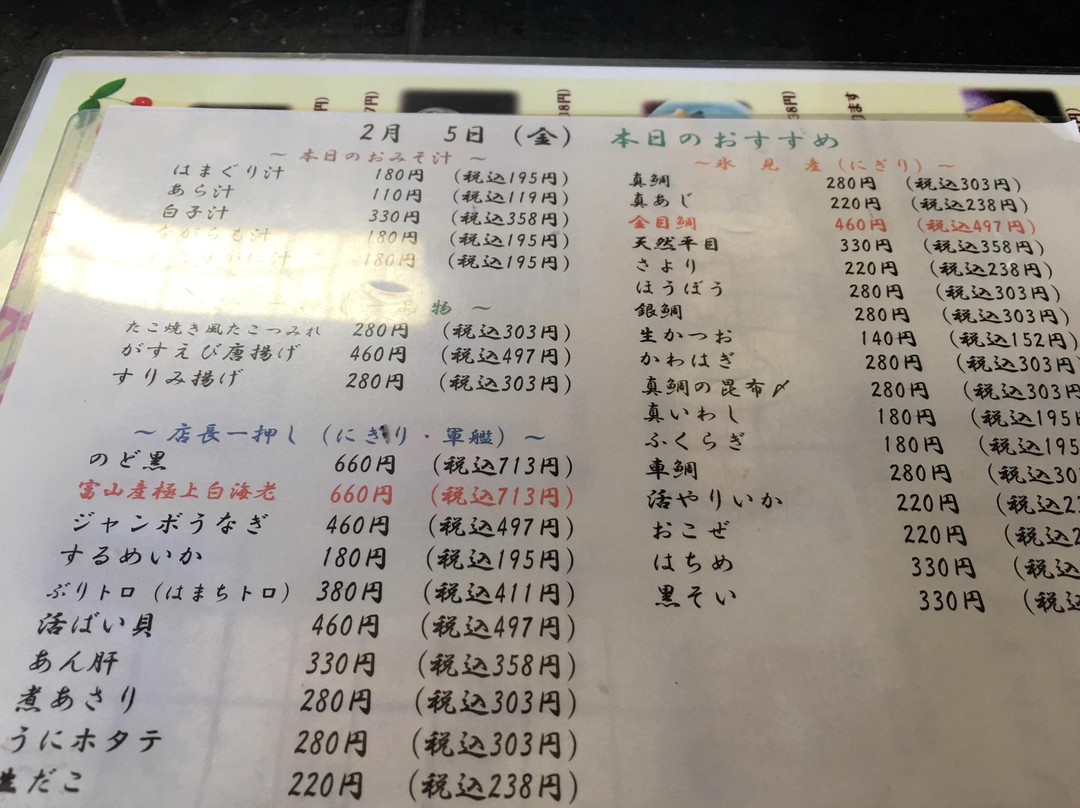 2月 5日 (金) 本日のおすすめ
～ 本日のおみそ汁 ～
はまぐり汁 180円 (税込195円)
あら汁 110円 (税込119円)
白子汁 330円 (税込358円)
ながらも汁 180円 (税込195円)
汁 180円 (税込195円)
物 ～
たこ焼き風たこつみれ 280円 (税込303円)
がすえび唐揚げ 460円 (税込497円)
すりみ揚げ 280円 (税込303円)
～ 店長一押し (にぎり・軍艦) ～
のど黒 660円 (税込713円)
富山産極上白海老 660円 (税込713円)
ジャンボうなぎ 460円 (税込497円)
するめいか 180円 (税込195円)
ぶりトロ (はまちトロ) 380円 (税込411円)
活ばい貝 460円 (税込497円)
あん肝 330円 (税込358円)
煮あさり 280円 (税込303円)
うにホタテ 280円 (税込303円)
生だこ 220円 (税込238円)
～氷 見 産 (にぎり) ～
真鯛 280円 (税込303円)
真あじ 220円 (税込238円)
金目鯛 460円 (税込497円)
天然平目 330円 (税込358円)
さより 220円 (税込238円)
ほうぼう 280円 (税込303円)
銀鯛 280円 (税込303円)
生かつお 140円 (税込152円)
かわはぎ 280円 (税込303円)
真鯛の昆布〆 280円 (税込303円
真いわし 180円 (税込195円
ふくらぎ 180円 (税込195
車鯛 280円 (税込30
活やりいか 220円 (税込2
おこぜ 220円 (税込2
はちめ 330円 (税込
黒そい 330円 (税込